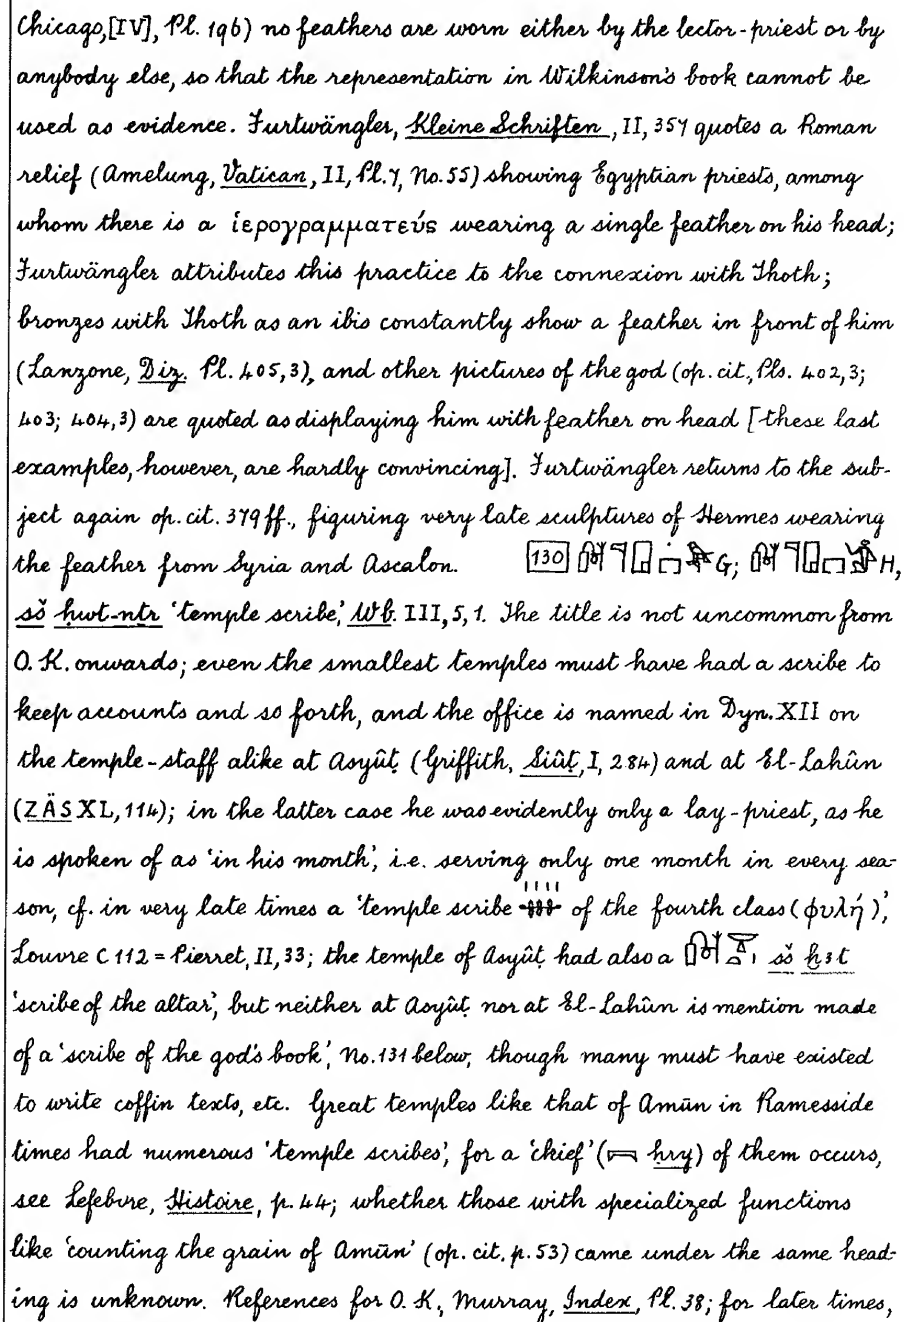 Chicago,[IV], Pl. 196) no feathers are worn either by the lector-priest or by
anybody else, so that the representation in Wilkinson's book cannot be
used as evidence. Furtwängler, Kleine Schriften, II, 357 quotes a Roman
relief (Amelung, Vatican, II, Pl.7, No.55) showing Egyptian priests, among
whom there is a ἱερογραμματεύς wearing a single feather on his head;
Furtwängler attributes this practice to the connexion with Thoth;
bronzes with Thoth as an ibis constantly show a feather in front of him
(Lanzone, Diz. Pl. 405,3), and other pictures of the god (op. cit., Pls. 402,3;
403; 404,3) are quoted as displaying him with feather on head [these last
examples, however, are hardly convincing]. Furtwängler returns to the sub-
ject again op. cit. 379 ff., figuring very late sculptures of Hermes wearing
the feather from Syria and Ascalon. 130 G; H,
sš ḥwt-nṯr 'temple scribe', Wb. III, 5, 1. The title is not uncommon from
O. K. onwards; even the smallest temples must have had a scribe to
keep accounts and so forth, and the office is named in Dyn. XII on
the temple-staff alike at Asyûṭ (Griffith, Siûṭ, I, 284) and at El-Lahûn
(ZÄS XL, 114); in the latter case he was evidently only a lay-priest, as he
is spoken of as 'in his month', i.e. serving only one month in every sea-
son, cf. in very late times a 'temple scribe of the fourth class (φυλή)',
Louvre C 112 = Pierret, II, 33; the temple of Asyûṭ had also a sš ḫꜣt
'scribe of the altar', but neither at Asyûṭ nor at El-Lahûn is mention made
of a 'scribe of the god's book', No. 131 below, though many must have existed
to write coffin texts, etc. Great temples like that of Amūn in Ramesside
times had numerous 'temple scribes', for a 'chief' (ḥry) of them occurs,
see Lefebvre, Histoire, p. 44; whether those with specialized functions
like 'counting the grain of Amūn' (op. cit. p. 53) came under the same head-
ing is unknown. References for O. K., Murray, Index, Pl. 38; for later times,